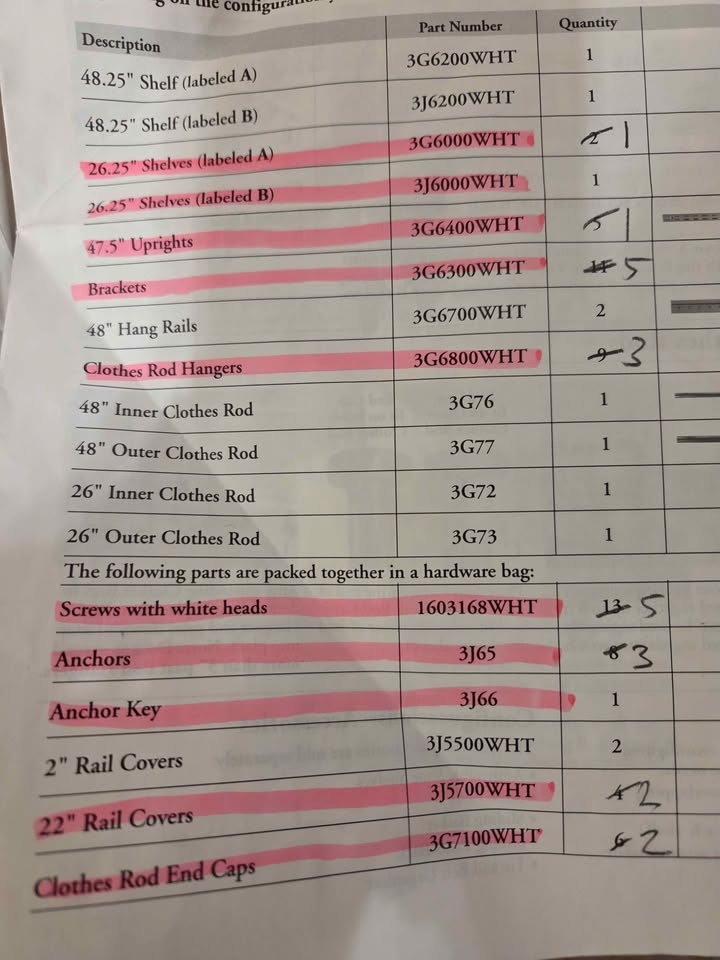 on the configuration
Description Part Number Quantity
48.25" Shelf (labeled A) 3G6200WHT 1
48.25" Shelf (labeled B) 3J6200WHT 1
26.25" Shelves (labeled A) 3G6000WHT 2 1
26.25" Shelves (labeled B) 3J6000WHT 1
47.5" Uprights 3G6400WHT 5 1
Brackets 3G6300WHT 11 5
48" Hang Rails 3G6700WHT 2
Clothes Rod Hangers 3G6800WHT 9 3
48" Inner Clothes Rod 3G76 1
48" Outer Clothes Rod 3G77 1
26" Inner Clothes Rod 3G72 1
26" Outer Clothes Rod 3G73 1
The following parts are packed together in a hardware bag:
Screws with white heads 1603168WHT 13 5
Anchors 3J65 8 3
Anchor Key 3J66 1
2" Rail Covers 3J5500WHT 2
22" Rail Covers 3J5700WHT 4 2
Clothes Rod End Caps 3G7100WHT 6 2